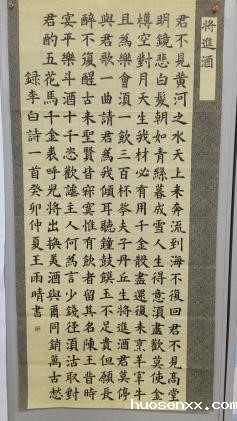 將進酒
君不見黃河之水天上來奔流到海不復回君不見高堂
明鏡悲白髮朝如青絲暮成雪人生得意須盡歡莫使金
樽空對月天生我材必有用千金散盡還復來烹羊宰牛
且為樂會須一飲三百杯岑夫子丹丘生將進酒君莫停
與君歌一曲請君為我傾耳聽鐘鼓饌玉不足貴但願長
醉不復醒古來聖賢皆寂寞惟有飲者留其名陳王昔時
宴平樂斗酒十千恣歡謔主人何為言少錢徑須沽取對
君酌五花馬千金裘呼兒將出換美酒與爾同銷萬古愁
錄李白詩一首癸卯仲夏王雨晴書
huosenxx.com